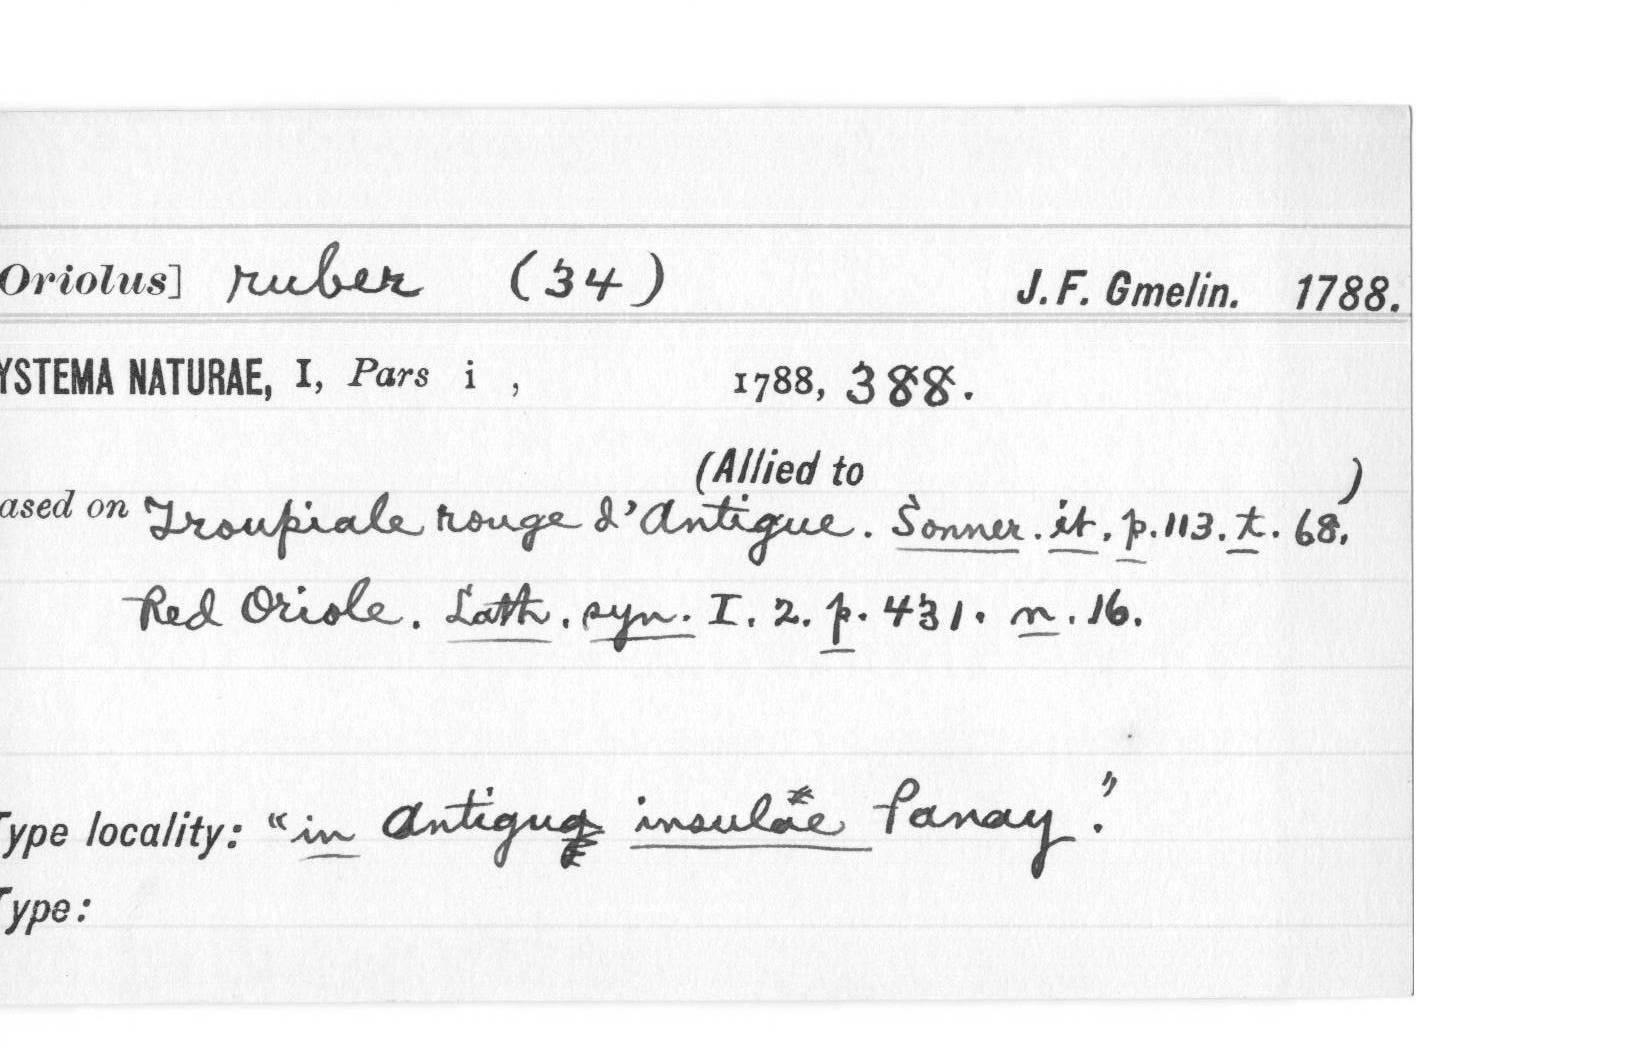 Oriolus] ruber (34) J. F. Gmelin. 1788.
YSTEMA NATURAE, I, Pars i , 1788, 388.
(Allied to )
ased on Troupiale rouge d'Antigue. Sonner. it. p. 113. t. 68.
Red Oriole. Lath. syn. I. 2. p. 431. n. 16.
Type locality: "in Antigua insulae Panay."
Type: